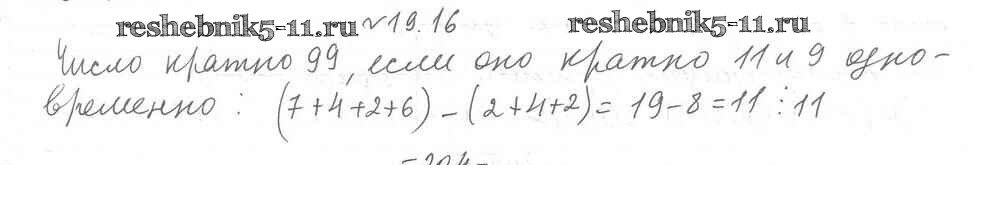 reshebnik5-11.ru №19.16 reshebnik5-11.ru
Число кратно 99, если оно кратно 11 и 9 одно-
временно: (7+4+2+6)-(2+4+2)=19-8=11⋮11